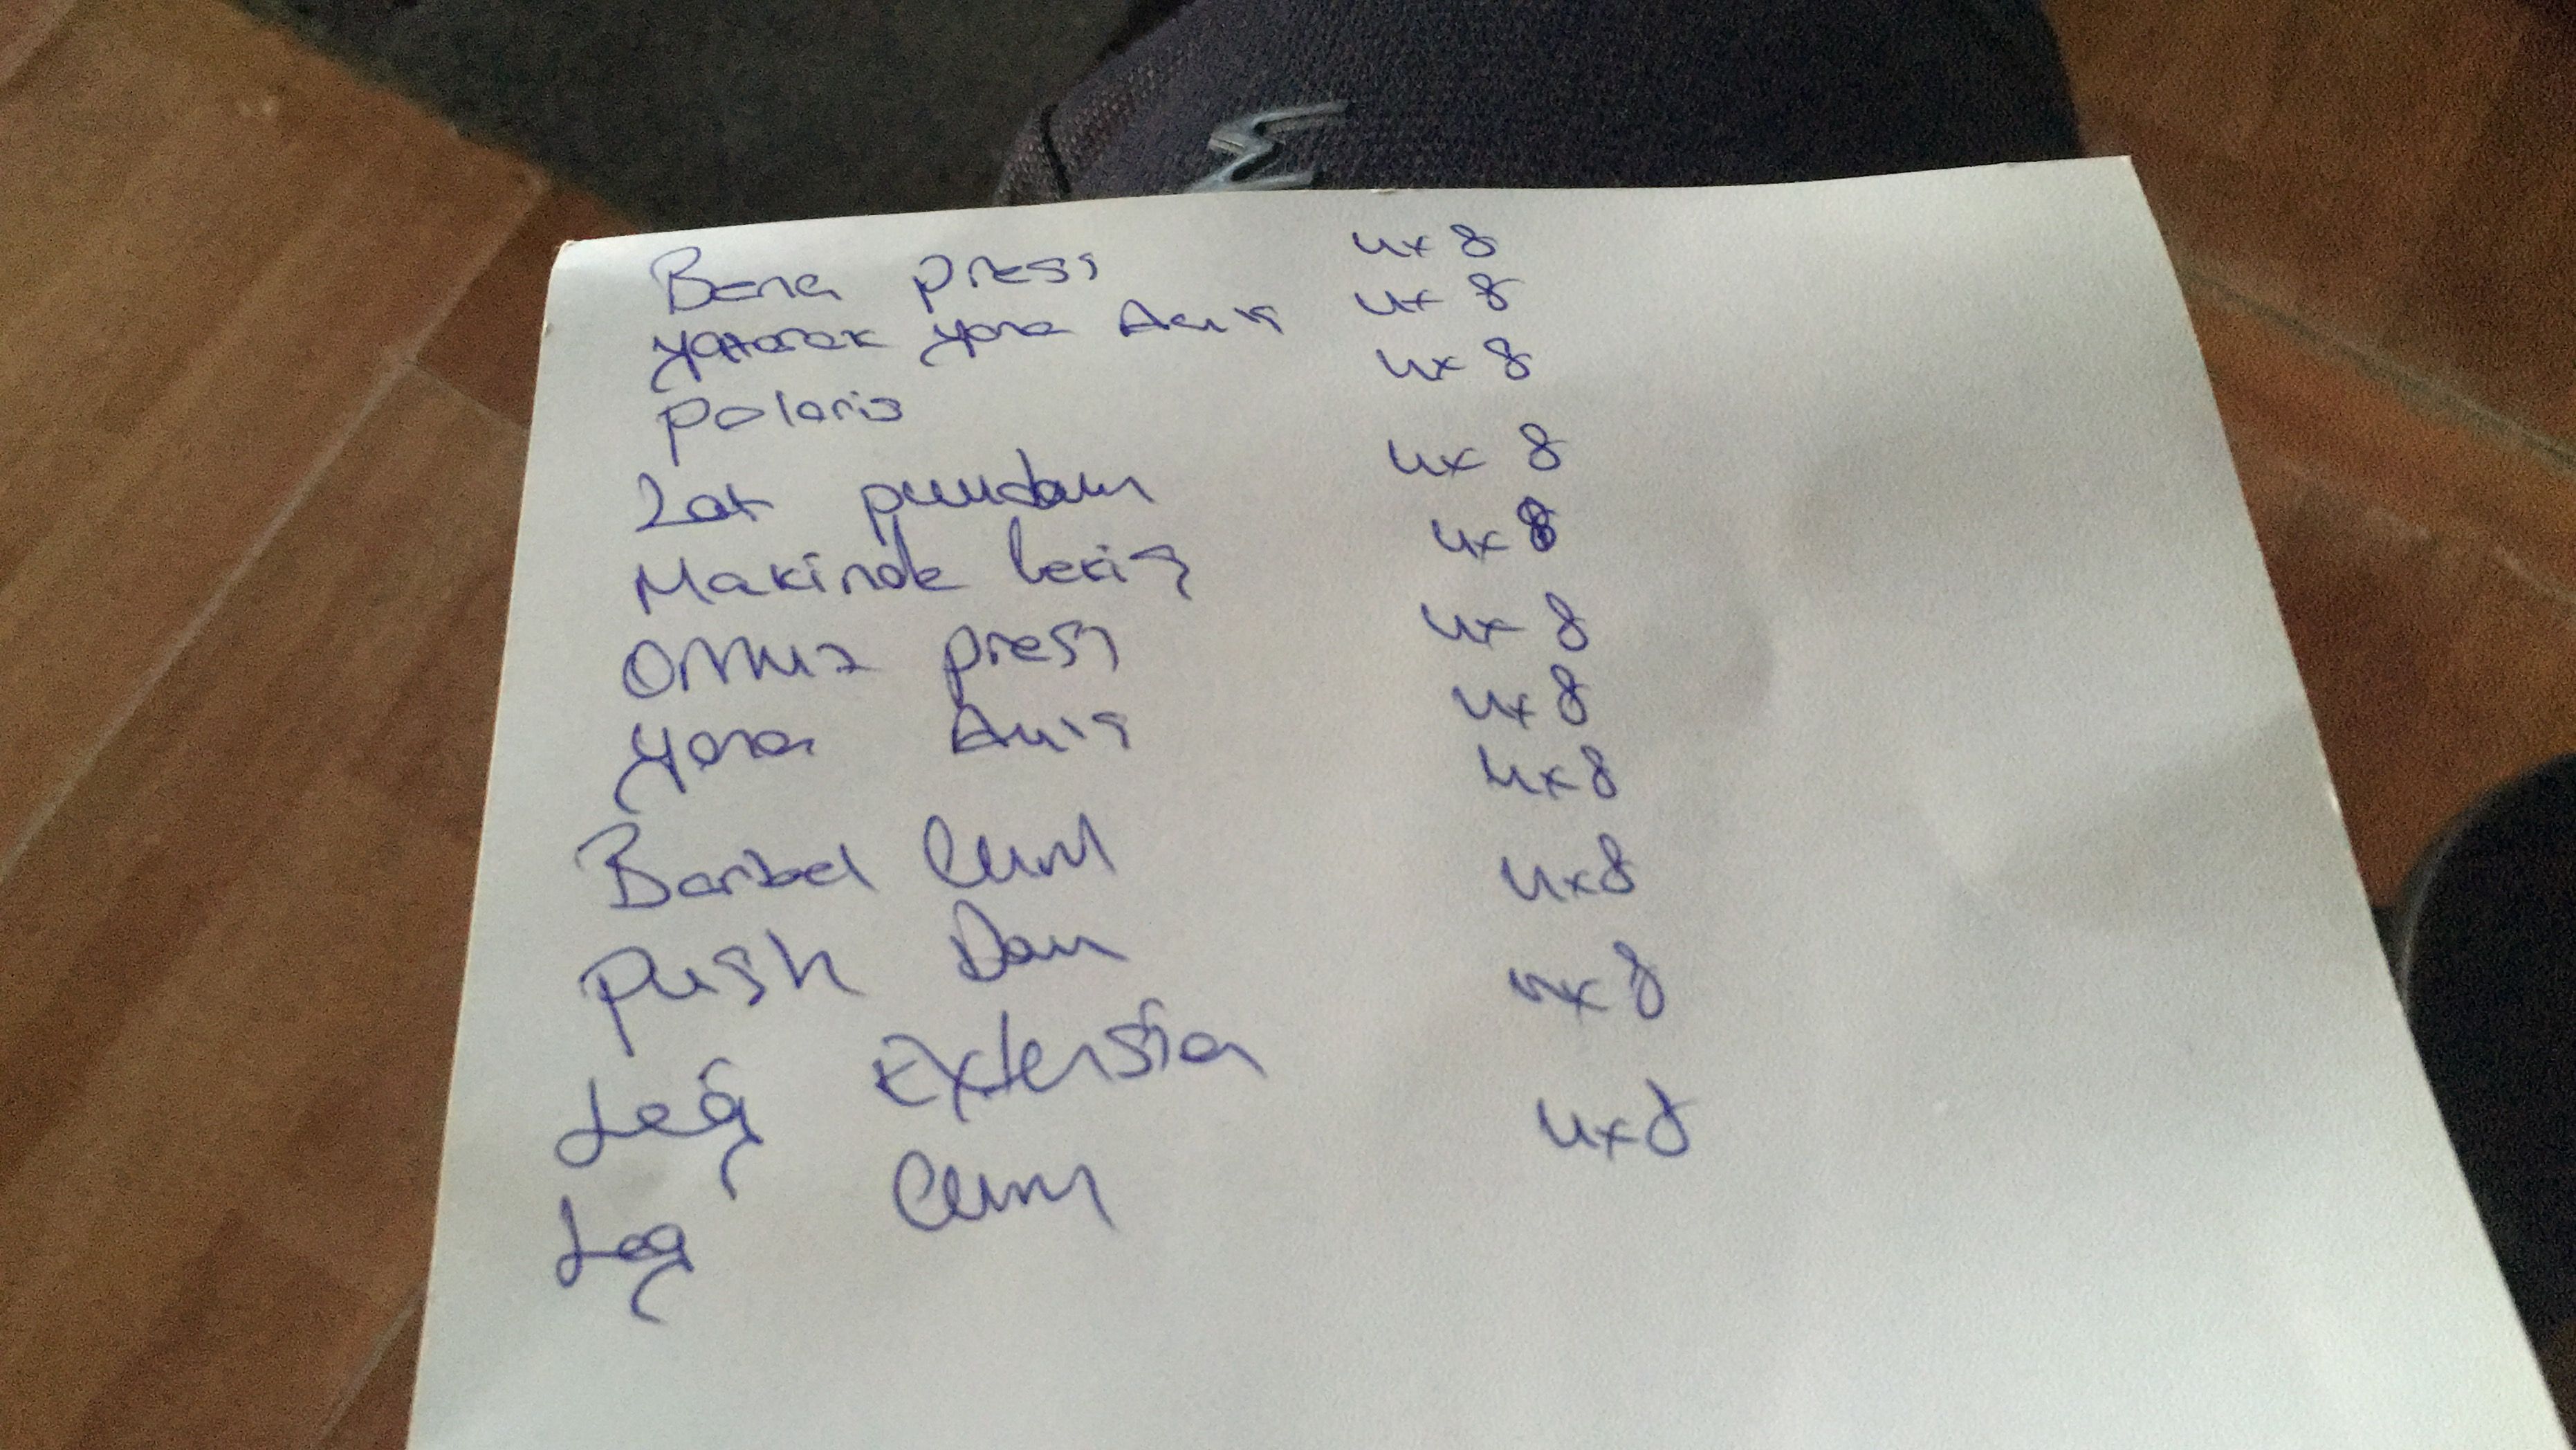 Benc press 4x8
yatarak yana Acıış 4x8
polaris 4x8
Lat puudawn 4x8
Makinde Cekiş 4x8
Omuz press 4x8
yana Acış 4x8
Barbel Curl 4x8
push Dawn 4x8
Leg Extensian 4x8
Leg Curl 4x8